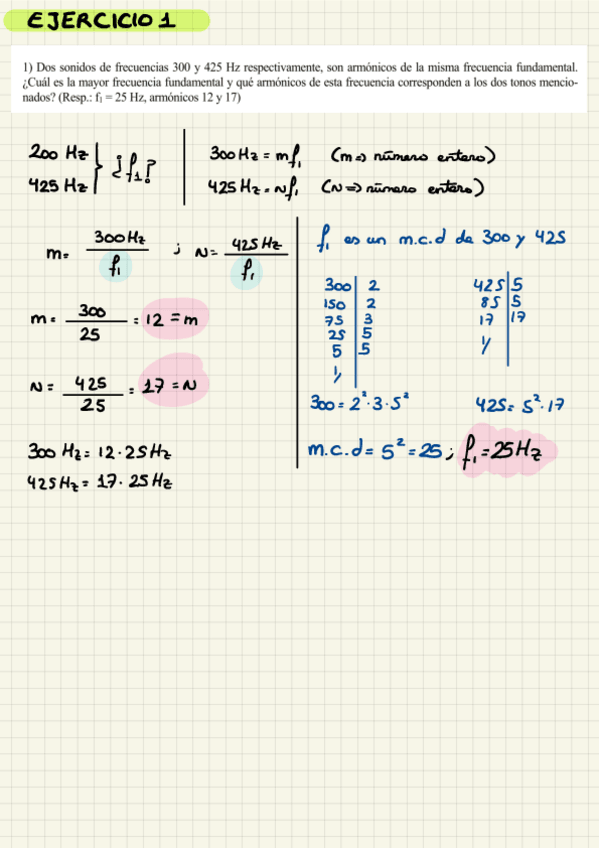 EJERCICIO 1
1) Dos sonidos de frecuencias 300 y 425 Hz respectivamente, son armónicos de la misma frecuencia fundamental.
¿Cuál es la mayor frecuencia fundamental y qué armónicos de esta frecuencia corresponden a los dos tonos mencio-
nados? (Resp.: f₁ = 25 Hz, armónicos 12 y 17)
200 Hz
425 Hz
¿f₁?
300 Hz = mf₁ (m => número entero)
425 Hz = Nf₁ (N => número entero)
m = 300 Hz / f₁ ; N = 425 Hz / f₁
m = 300 / 25 = 12 = m
N = 425 / 25 = 17 = N
300 Hz = 12 · 25 Hz
425 Hz = 17 · 25 Hz
f₁ es un m.c.d de 300 y 425
300 | 2
150 | 2
75 | 3
25 | 5
5 | 5
1/
425 | 5
85 | 5
17 | 17
1/
300 = 2² · 3 · 5²
425 = 5² · 17
m.c.d = 5² = 25 ; f₁ = 25 Hz